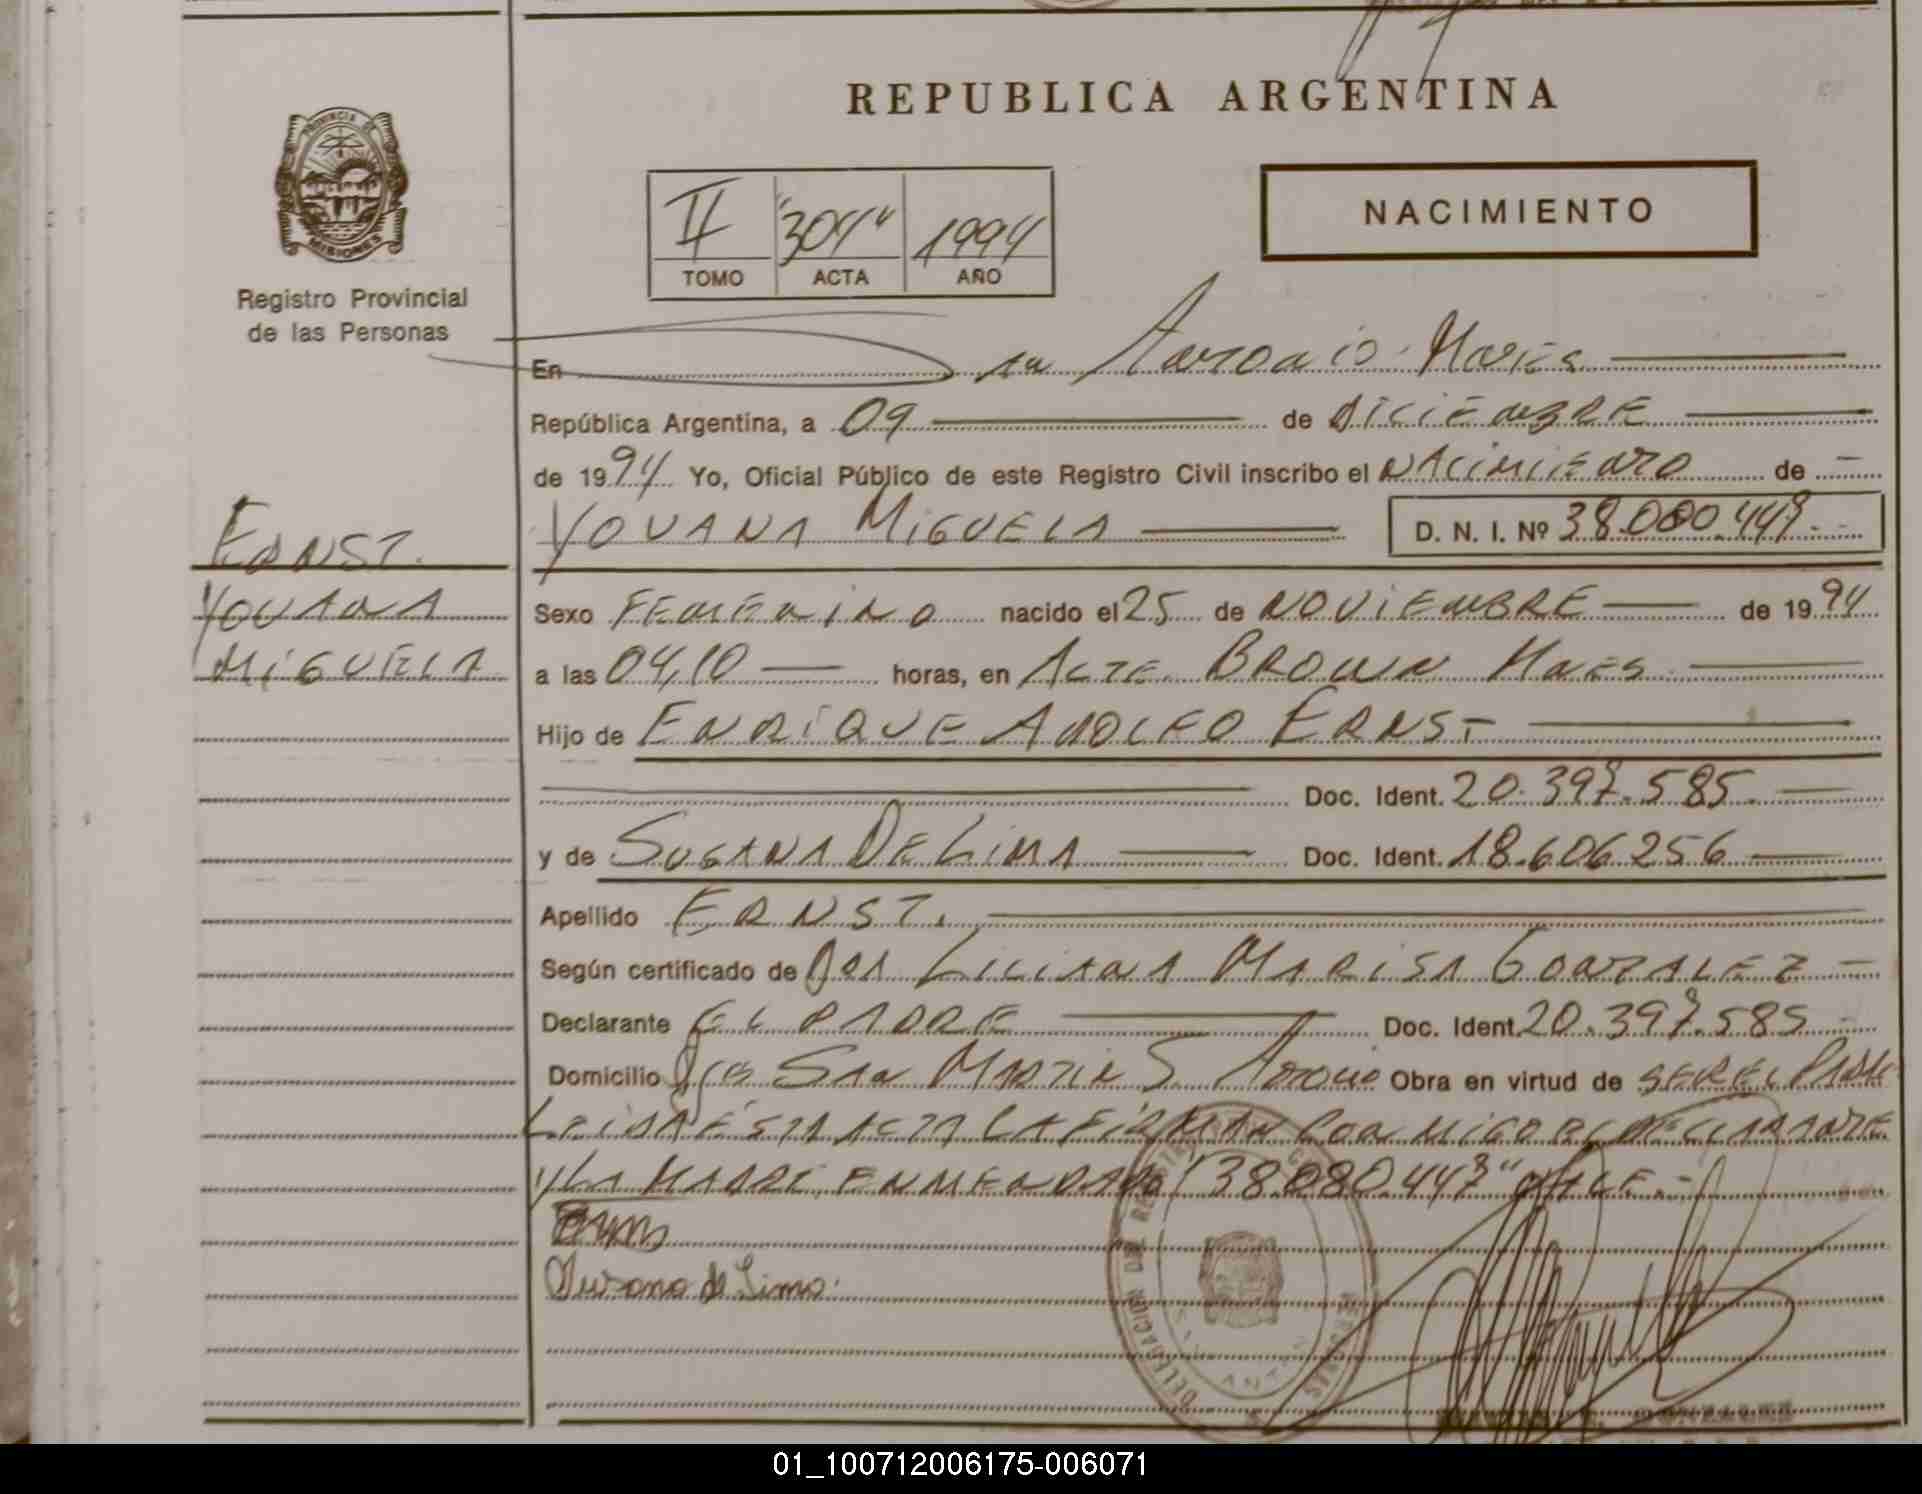 REPUBLICA ARGENTINA
PROVINCIA DE
MISIONES
Registro Provincial
de las Personas
NACIMIENTO
II "304" 1994
TOMO ACTA AÑO
En Sn Antonio Mnes
República Argentina, a 09 de Diciembre
de 1994 Yo, Oficial Público de este Registro Civil inscribo el Nacimiento de
YOVANA MIGUELA D. N. I. Nº 38.080.447
ERNST.
YOVANA
MIGUELA
Sexo Femenino nacido el 25 de NOVIEMBRE de 1994
a las 04,10 horas, en Alte. BROWN Mnes
Hijo de ENRIQUE ADOLFO ERNST
Doc. Ident. 20.397.585
y de SUSANA DE LIMA Doc. Ident. 18.606.256
Apellido ERNST.
Según certificado de LILIANA MARISA GONZALEZ
Declarante EL PADRE Doc. Ident. 20.397.585
Domicilio San Martin S. Antonio Obra en virtud de SER EL PADRE
LEIDA ESTA ACTA LA FIRMAN CON MIGO EL DECLARANTE
Y LA MADRE, ENMENDADO "38.080.447" VALE.-
Susana de Lima
DELEGACION DEL REGISTRO
MISIONES
01_100712006175-006071